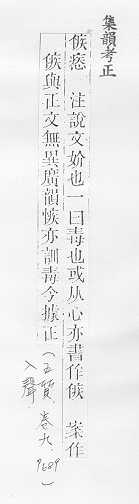 集韻考正
㑵㥶 注說文妎也一曰毒也或从心亦書作㑵 案作
㑵與正文無異廣韻㥶亦訓毒今據正(五質 卷九 9689
入聲)